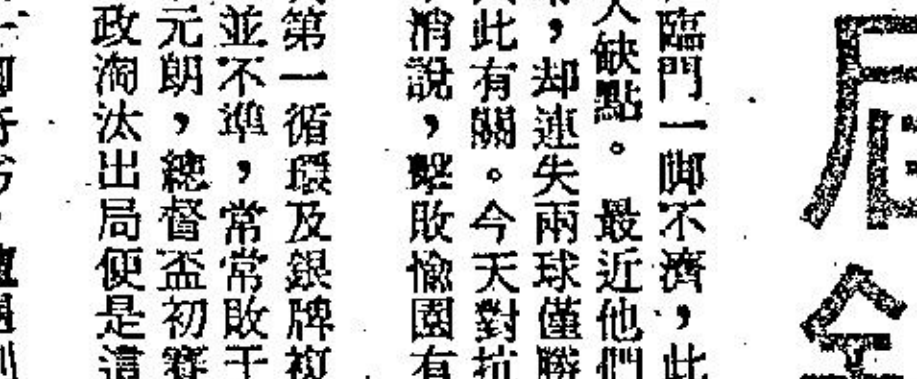 臨門一脚不濟，此
缺點。最近他們
，却連失兩球僅勝
此有關。今天對抗
消說，擊敗愉園有
第一循環及銀牌複
並不準，常常敗于
元朗，總督盃初賽
政淘汰出局便是這